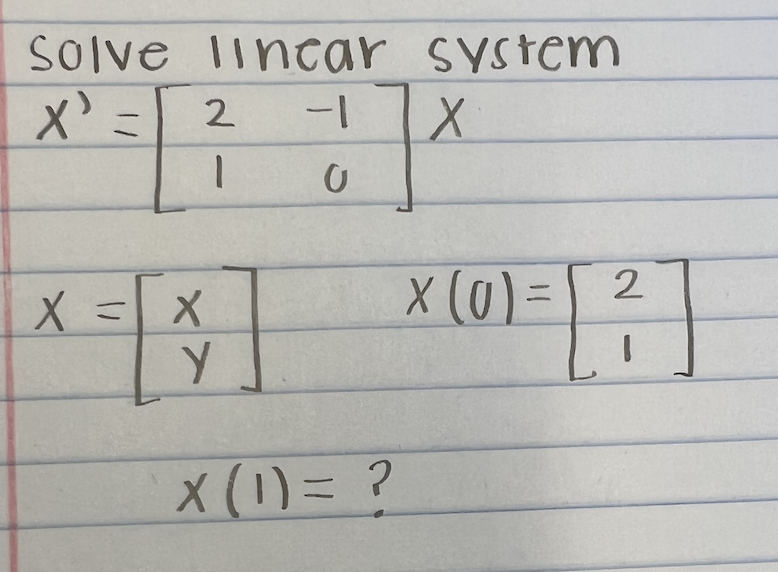 solve linear system
X' = [ 2 -1 ] X
[ 1 0 ]
X = [ x ] X(0) = [ 2 ]
[ y ] [ 1 ]
x(1) = ?